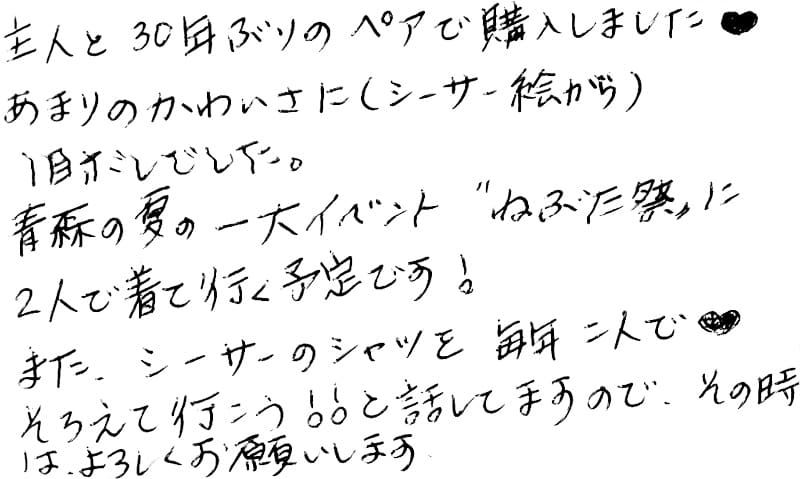 主人と30年ぶりのペアで購入しました♥
あまりのかわいさに(シーサー絵がら)
1目ボレでした。
青森の夏の一大イベント〝ねぶた祭〟に
2人で着て行く予定です!
また、シーサーのシャツを毎年二人で♥
そろえて行こう!!と話してますので、その時
は、よろしくお願いします